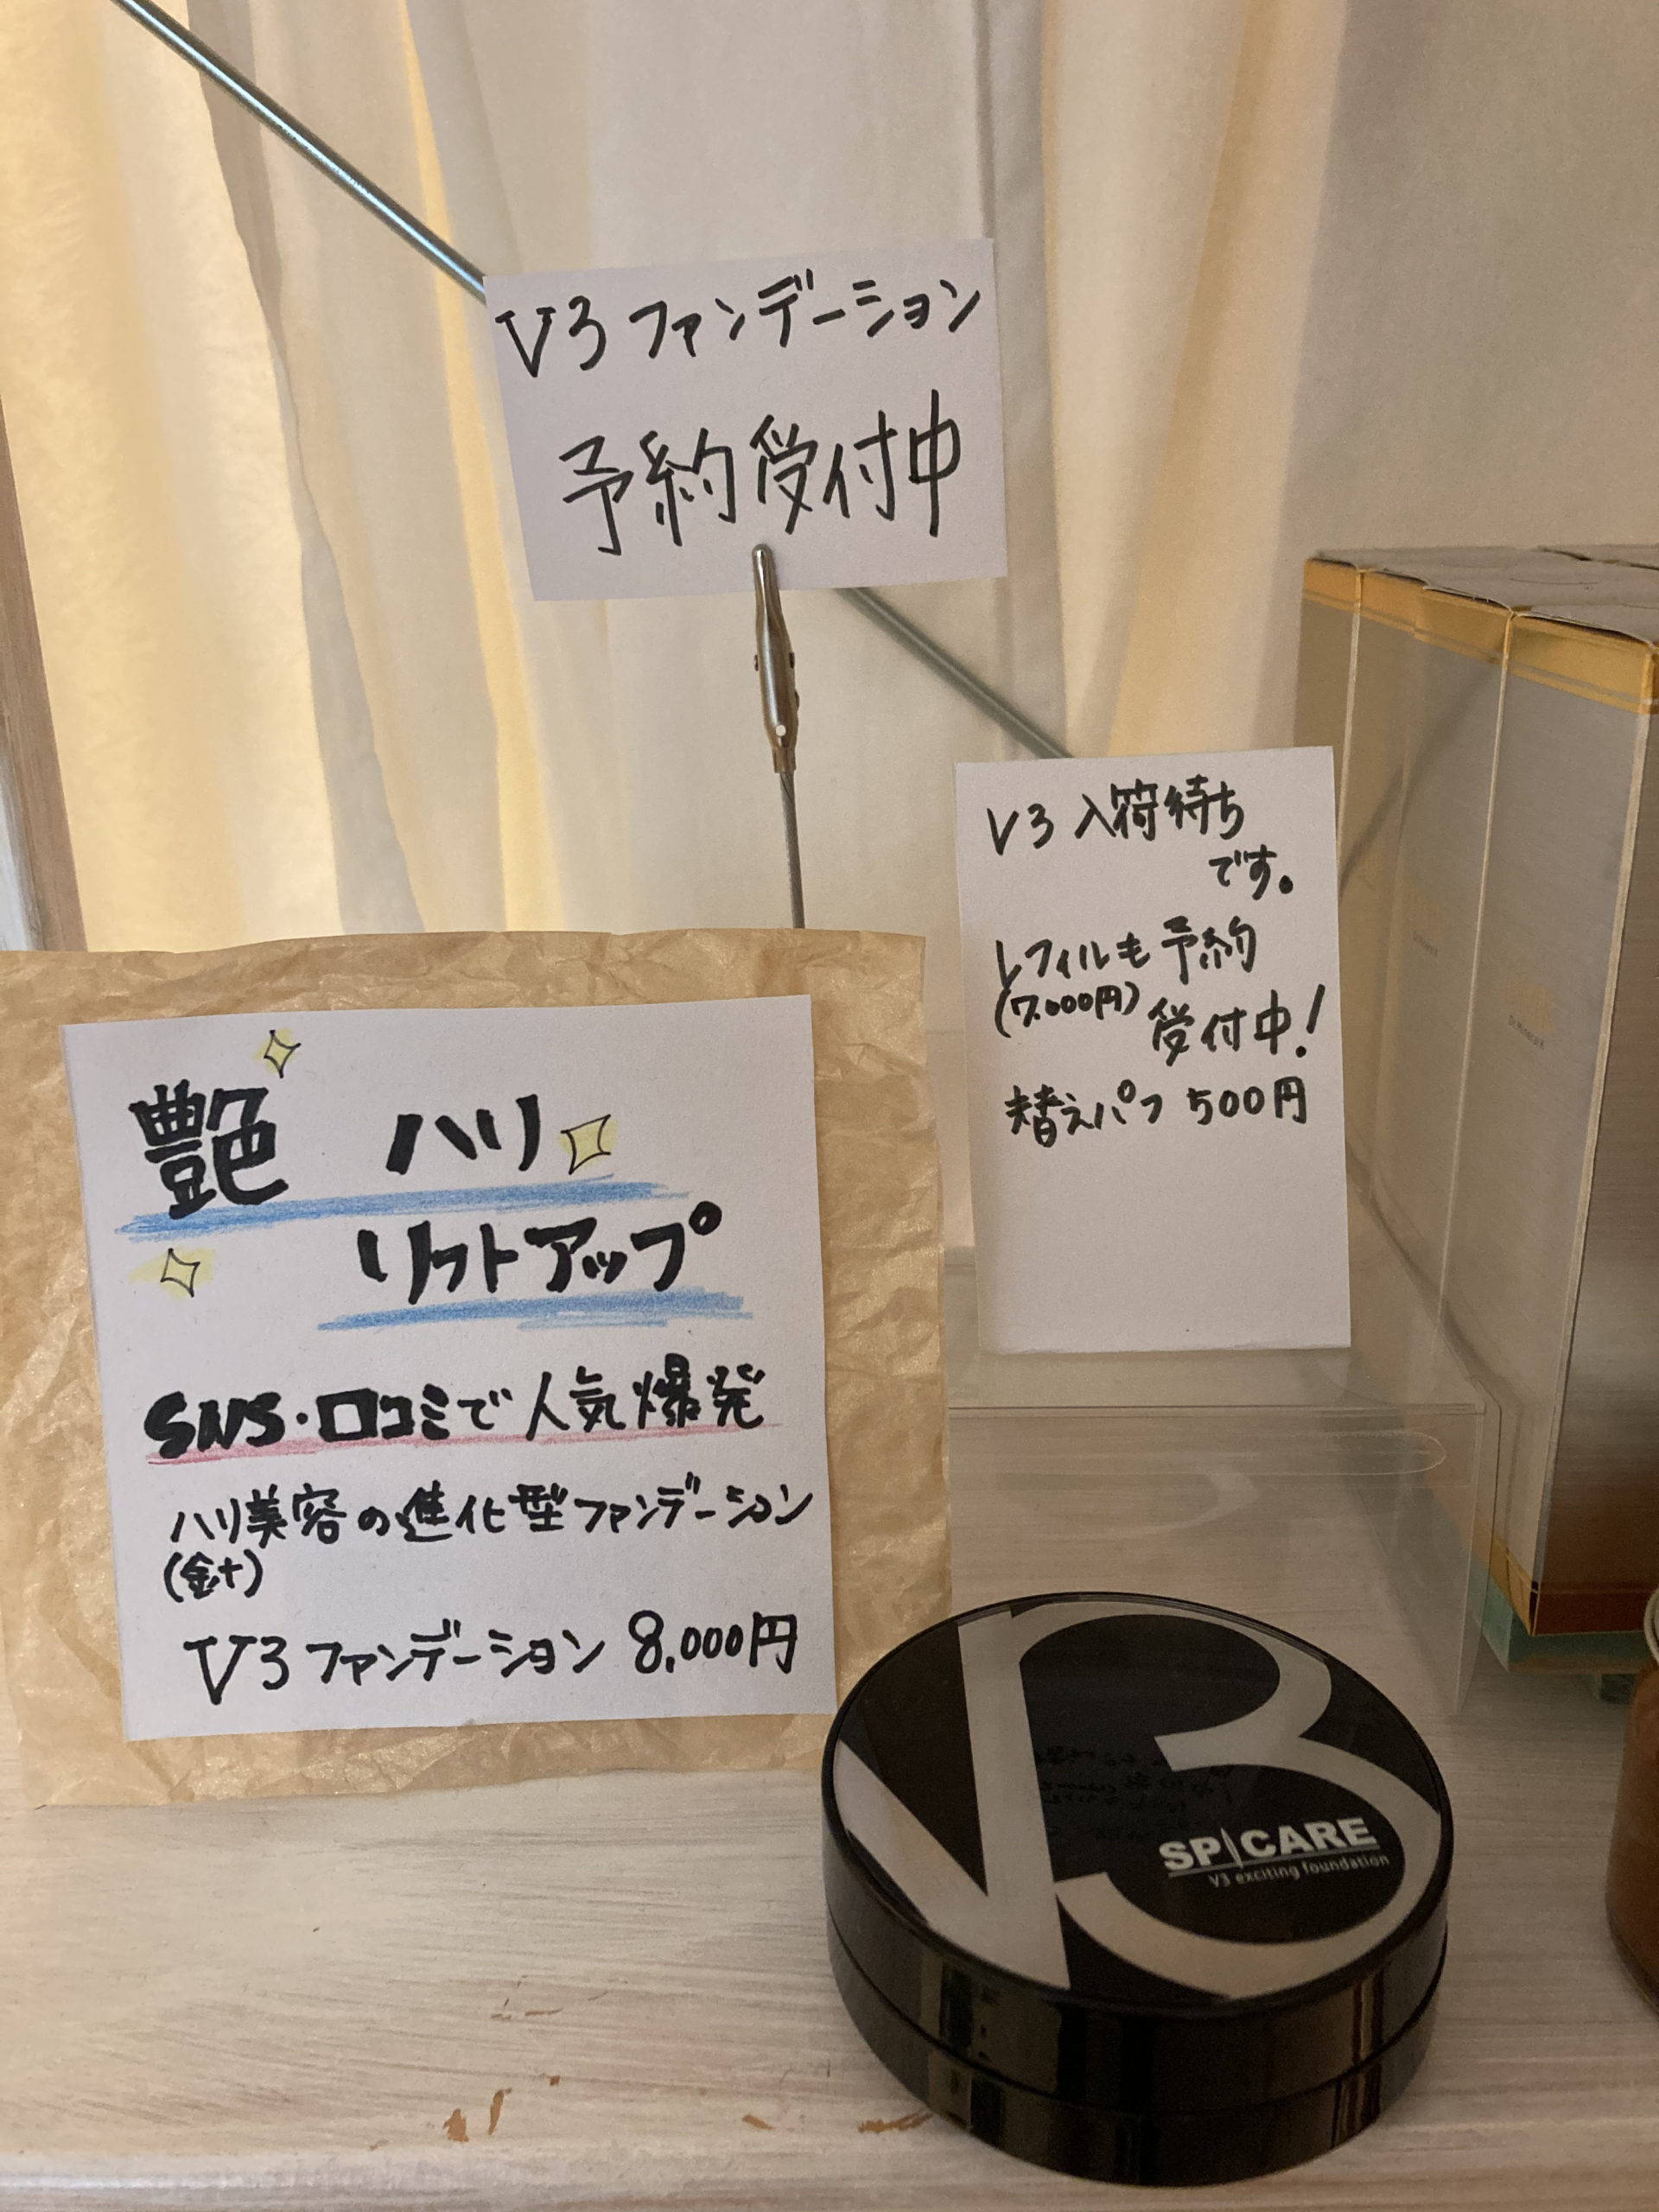 V3 ファンデーション
予約受付中
V3 入荷待ち
です。
レフィルも予約
(7,000円) 受付中!
替えパフ 500円
艶 ハリ
リフトアップ
SNS・口コミで人気爆発
ハリ美容の進化型ファンデーション
(針)
V3 ファンデーション 8,000円
V3
SPICARE
V3 exciting foundation